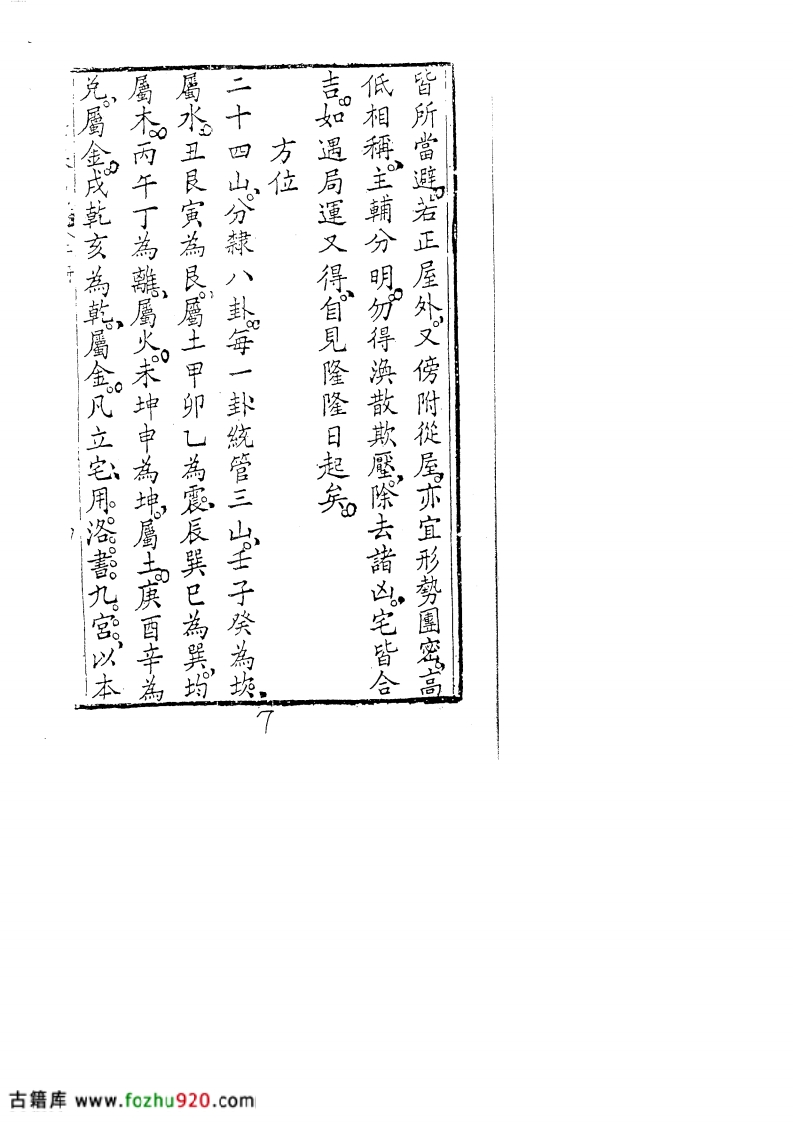 皆所當避若正屋外又傍附從屋亦宜形勢團密高
低相稱主輔分明勿得渙散欺壓除去諸凶宅皆合
吉如遇局運又得自見隆隆日起矣
方位
二十四山分隸八卦每一卦統管三山壬子癸為坎
屬水丑艮寅為艮屬土甲卯乙為震辰巽巳為巽均
屬木丙午丁為離屬火未坤申為坤屬土庚酉辛為
兌屬金戌乾亥為乾屬金凡立宅用洛書九宮以本
7
古籍库 www.fozhu920.com